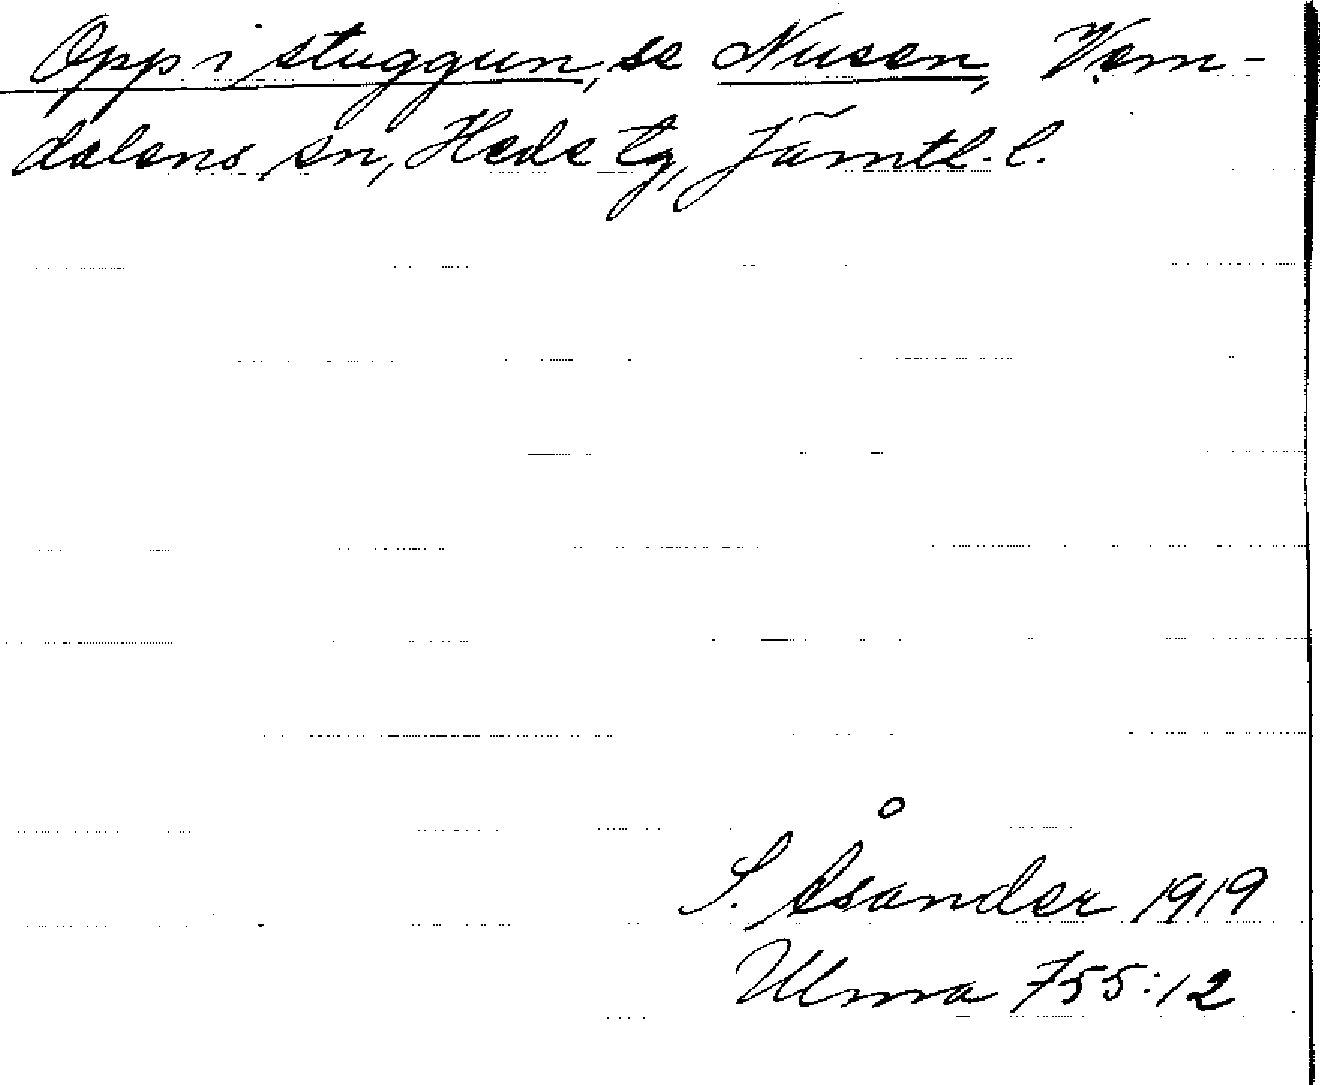 Opp i stuggun, se Nusen, Vem-
dalens sn, Hede tg, Jämtl. l.
S. Åsander 1919
Ulma 755:12